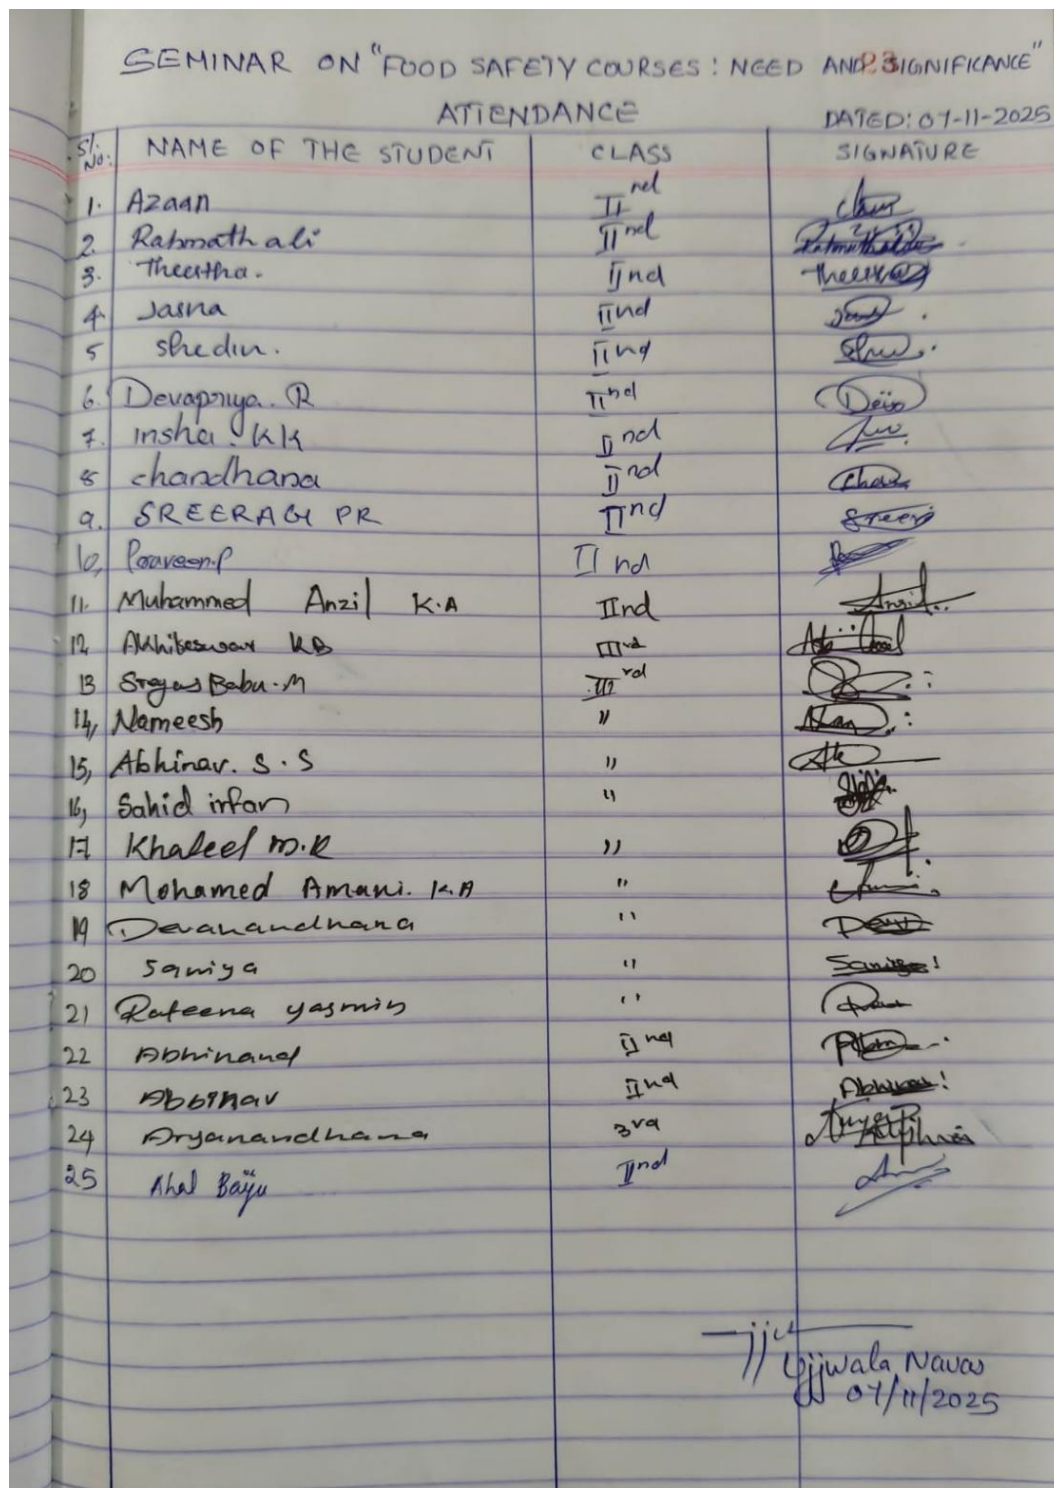 SEMINAR ON "FOOD SAFETY COURSES: NEED AND SIGNIFICANCE"
23
ATTENDANCE
DATED: 07-11-2025
Sl. No: NAME OF THE STUDENT CLASS SIGNATURE
1. Azaan IInd
2. Rahmath ali IInd
3. Theertha. IInd Theertha
4. Jasna IInd
5 shedin. IInd
6. Devapriya. R IInd
7. insha. KK IInd
8 chandhana IInd
9. SREERAG PR IInd
10, Praveen.P IInd
11. Muhammed Anzil K.A IInd Anzil
12 Akhileswar KB IIIrd
13 Sreyas Babu.M IIIrd
14, Nameesh "
15, Abhinav. S.S "
16, Sahid irfan "
17 Khaleel M.R "
18 Mohamed Amani. K.A "
19 Devanandhana "
20 Saniya " Saniya!
21 Rafeena yasmin "
22 Abhinand IInd
23 Abhinav IInd Abhinav!
24 Aryanandhana 3rd
25 Ahal Baiju IInd
Ujjwala Navas
07/11/2025